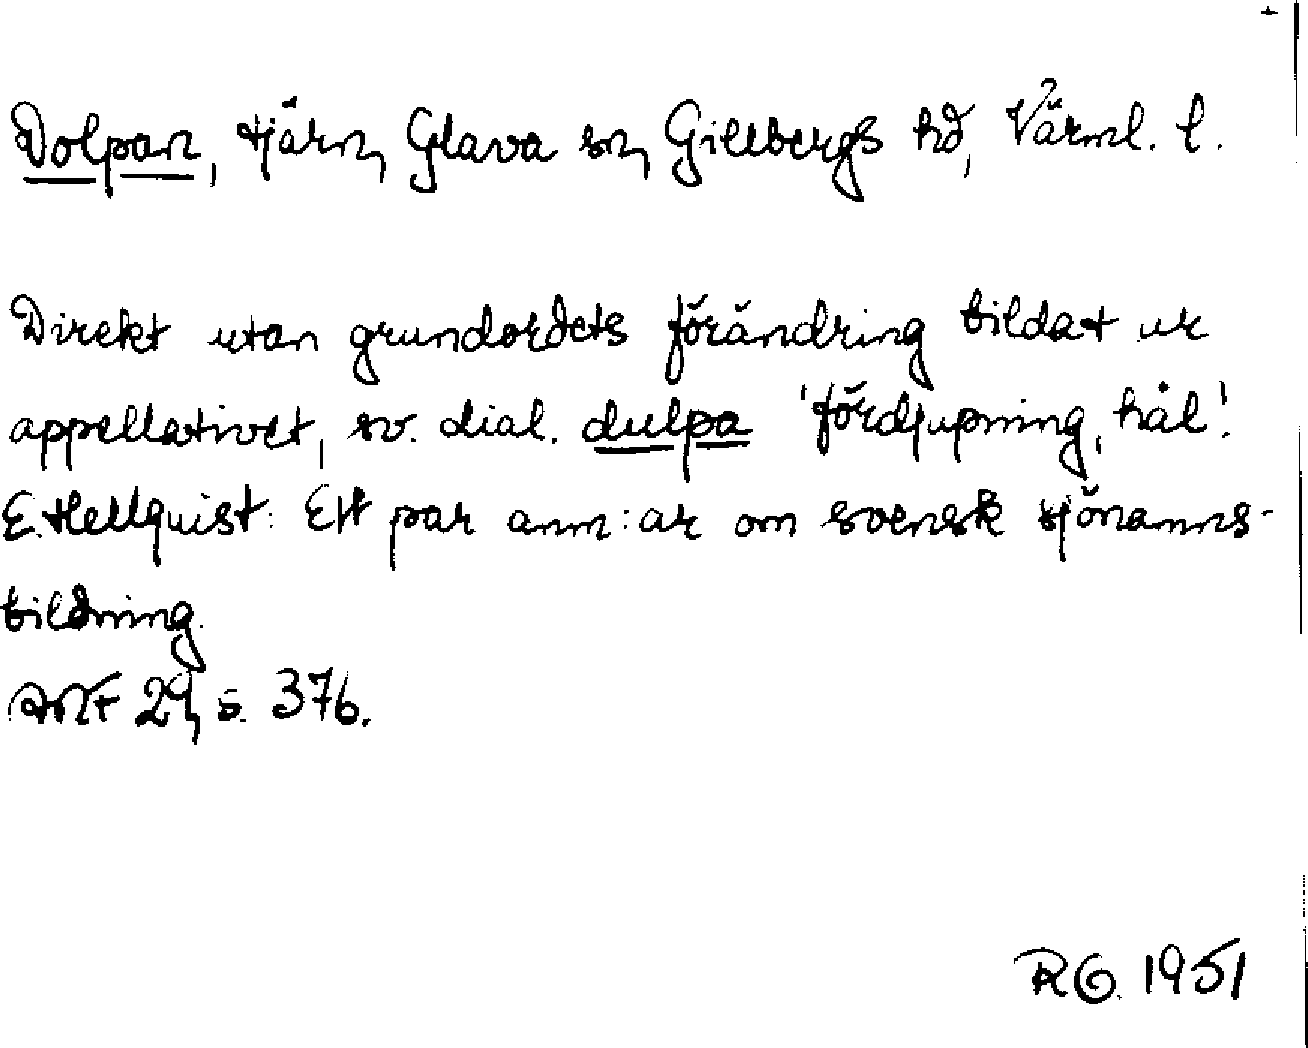 Dolpan, tjärn, Glava sn, Gillbergs hd, Värml. l.
Direkt utan grundordets förändring bildat ur
appellativet, sv. dial. dulpa 'fördjupning, hål'.
E. Hellquist: Ett par anm:ar om svensk sjönamns-
bildning.
ANF 29, s. 376.
RG. 1951